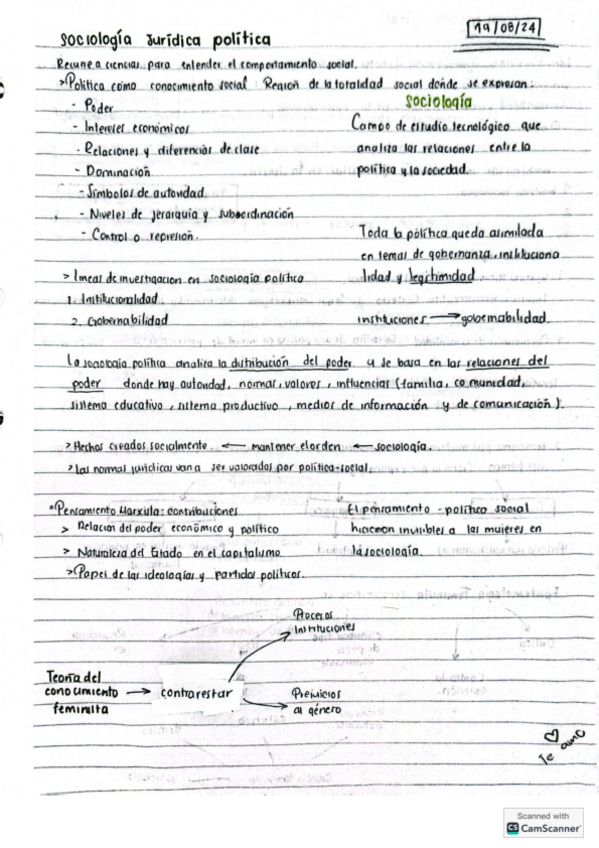 19/08/24
Sociología Jurídica política
Reune a ciencias para entender el comportamiento social.
>Política como conocimiento social: Region de la totalidad social donde se expresan:
- Poder
- Intereses económicos
- Relaciones y diferencias de clase
- Dominación
- Símbolos de autoridad
- Niveles de jerarquía y subordinación
- Control o represión.
Sociología
Campo de estudio tecnológico que
analiza las relaciones entre la
política y la sociedad.
Toda la política queda asimilada
en temas de gobernanza, instituciona
lidad y legitimidad
instituciones → gobernabilidad.
> Lineas de investigacion en sociología política
1. Institucionalidad
2. Gobernabilidad
La sociologia política analiza la distribución del poder y se basa en las relaciones del
poder donde hay autoridad, normas, valores, influencias (familia, comunidad,
sistema educativo, sistema productivo, medios de información y de comunicación).
> Hechos creados socialmente ← mantener el orden ← sociología.
> Las normas jurídicas van a ser valorados por política-social.
*Pensamiento Marxista: contribuciones
> Relacion del poder económico y político
> Naturaleza del Estado en el capitalismo
>Papel de las ideologías y partidos políticos.
El pensamiento - político social
hicieron invisibles a las mujeres en
la sociología.
Teoría del
conocimiento → contrarestar
feminista
Procesos
Instituciones
Prejuicios
al género
♡
Te amo
Scanned with
CS CamScanner